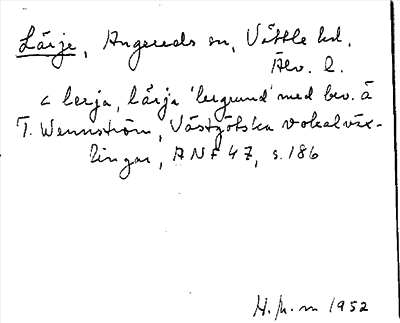 Lärje, Angereds sn, Vättle hd,
Älv. l.
< lerja, lärja 'lergrund' med bev. ä
T. Wennström, Västgötska vokalväx-
lingar, ANF 47, s. 186
H. h. m 1952